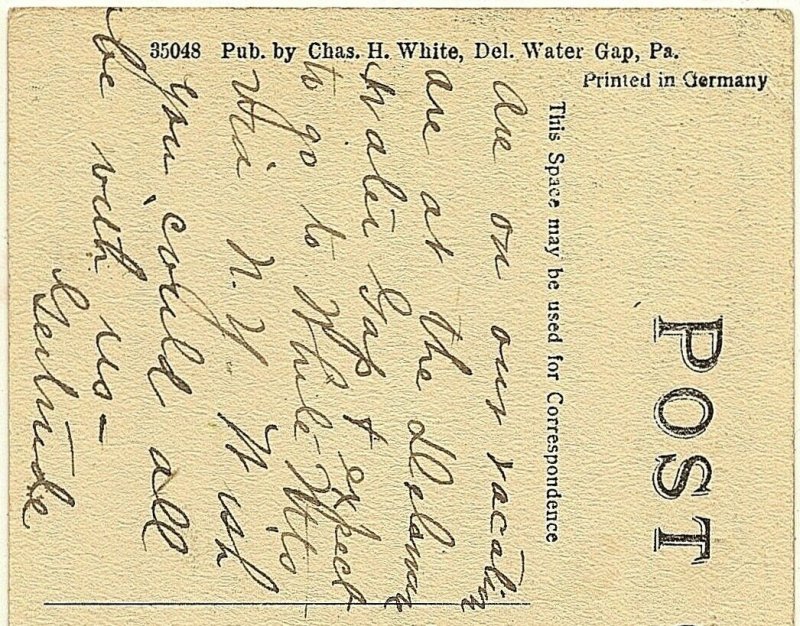 35048 Pub. by Chas. H. White, Del. Water Gap, Pa.
Printed in Germany
POST
This Space may be used for Correspondence
Are on our vacation
are at the Delaware
Water Gap & expect
to go to White Mts
via N.Y. Wish
you could all
be with us-
Gertrude